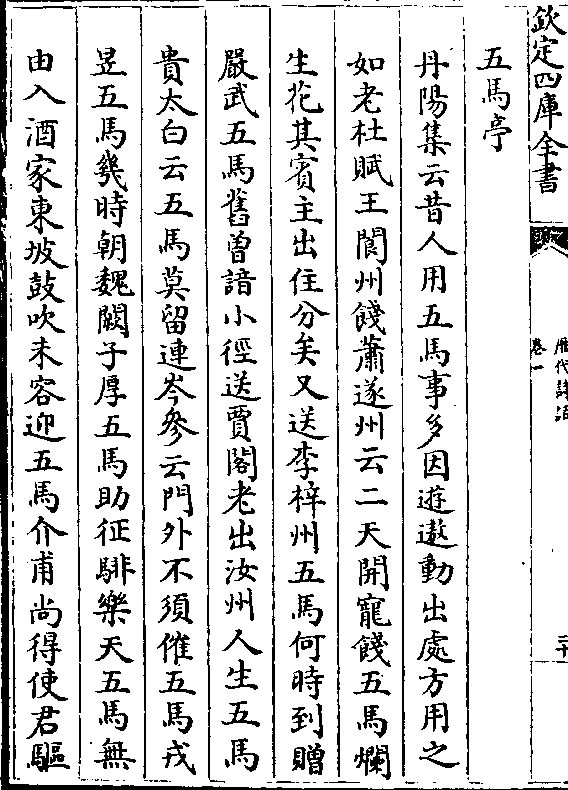 欽定四庫全書
歷代詩話
卷一
二十
五馬亭
丹陽集云昔人用五馬事多因遊遨動出處方用之
如老杜賦王閬州餞蕭遂州云二天開寵餞五馬爛
生花其賓主出住分矣又送李梓州五馬何時到贈
嚴武五馬舊曾諳小徑送賈閣老出汝州人生五馬
貴太白云五馬莫留連岑參云門外不須催五馬戎
昱五馬幾時朝魏闕子厚五馬助征騑樂天五馬無
由入酒家東坡鼓吹未容迎五馬介甫尚得使君驅